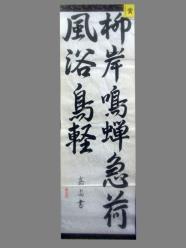 柳岸鳴蝉急荷
風浴鳥軽
書